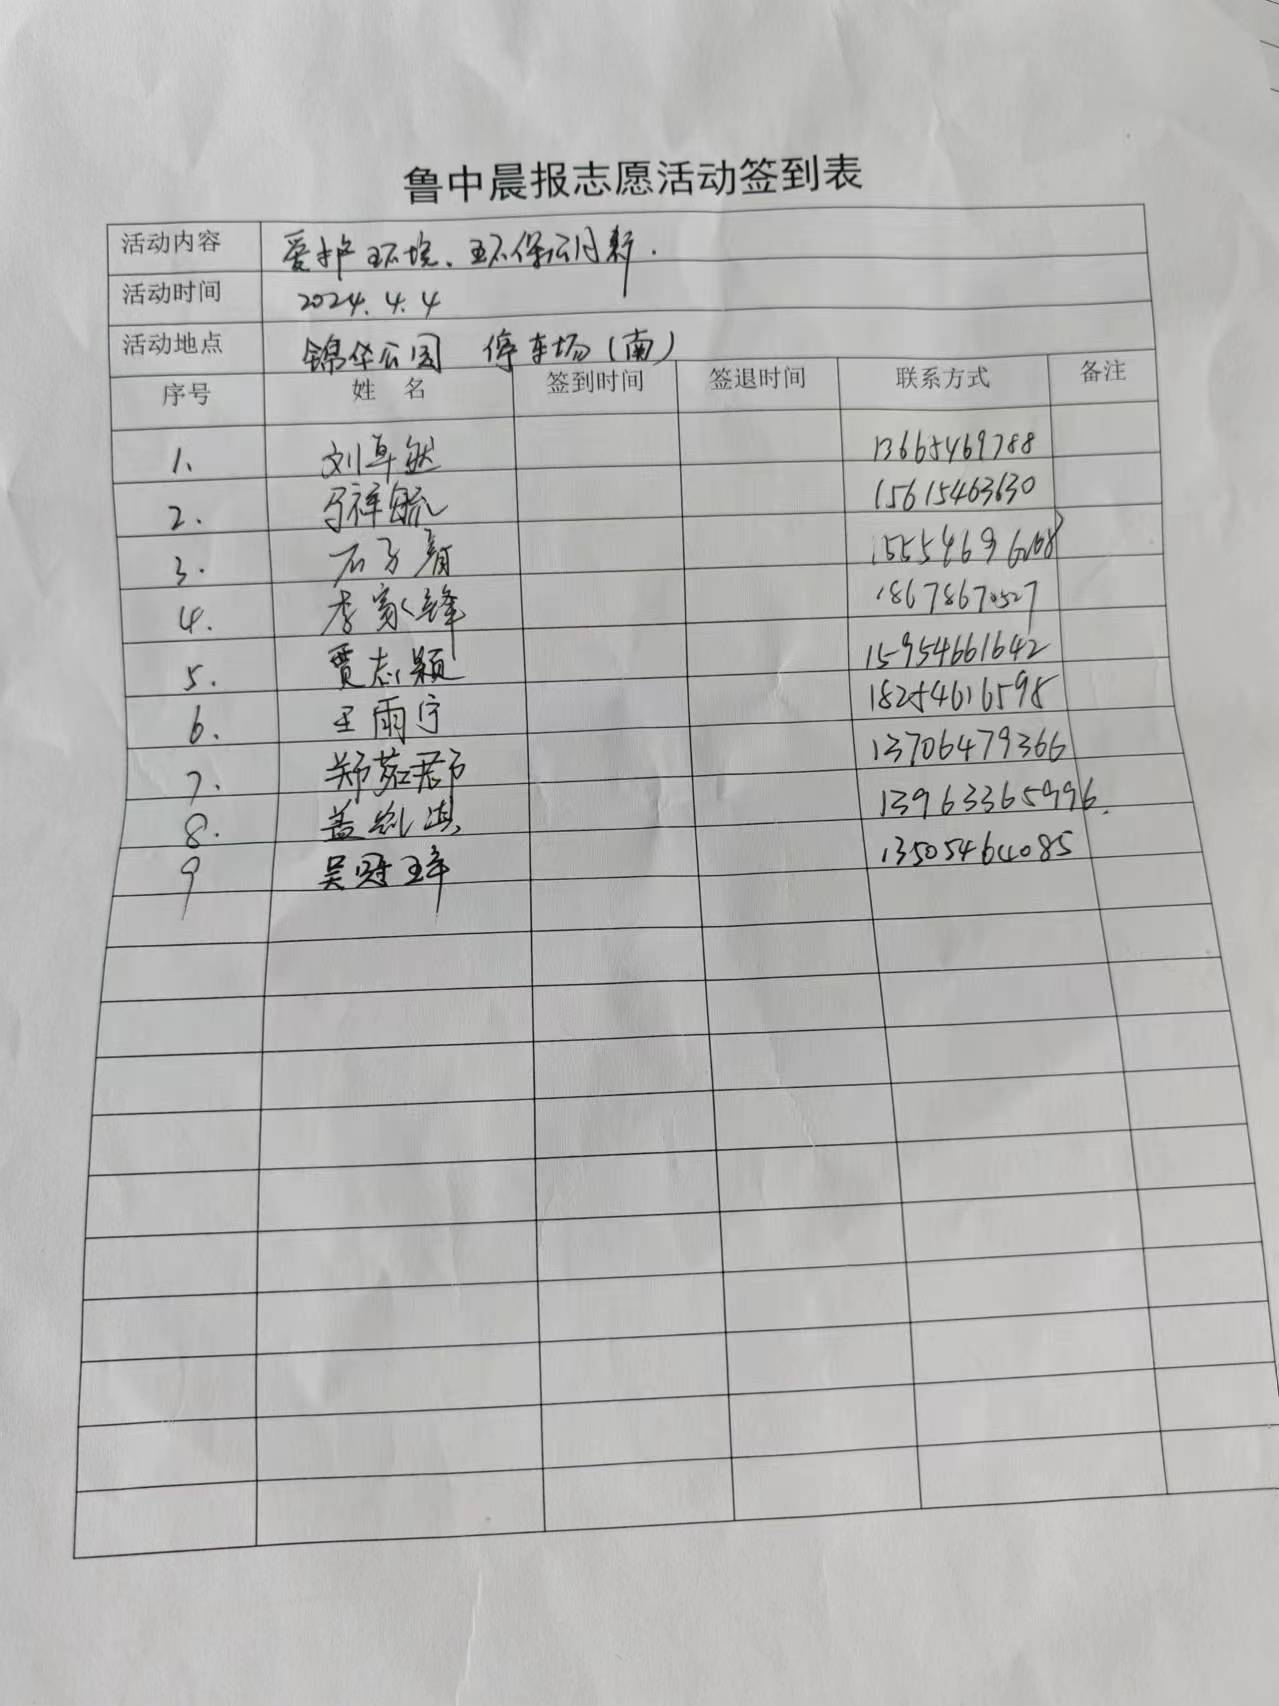 鲁中晨报志愿活动签到表
活动内容 爱护环境、环保云月新.
活动时间 2024.4.4
活动地点 锦华公园 停车场(南)
序号 姓 名 签到时间 签退时间 联系方式 备注
1. 刘卓然 13665469788
2. 马祥毓 15615463630
3. 石子睛
4. 李家锋 18678670527
5. 贾志颖 15954661642
6. 王雨宁 18254616598
7. 郑茗郡 13706479366
8. 盖 淇 13963365996.
9 吴冠璋 13505464085